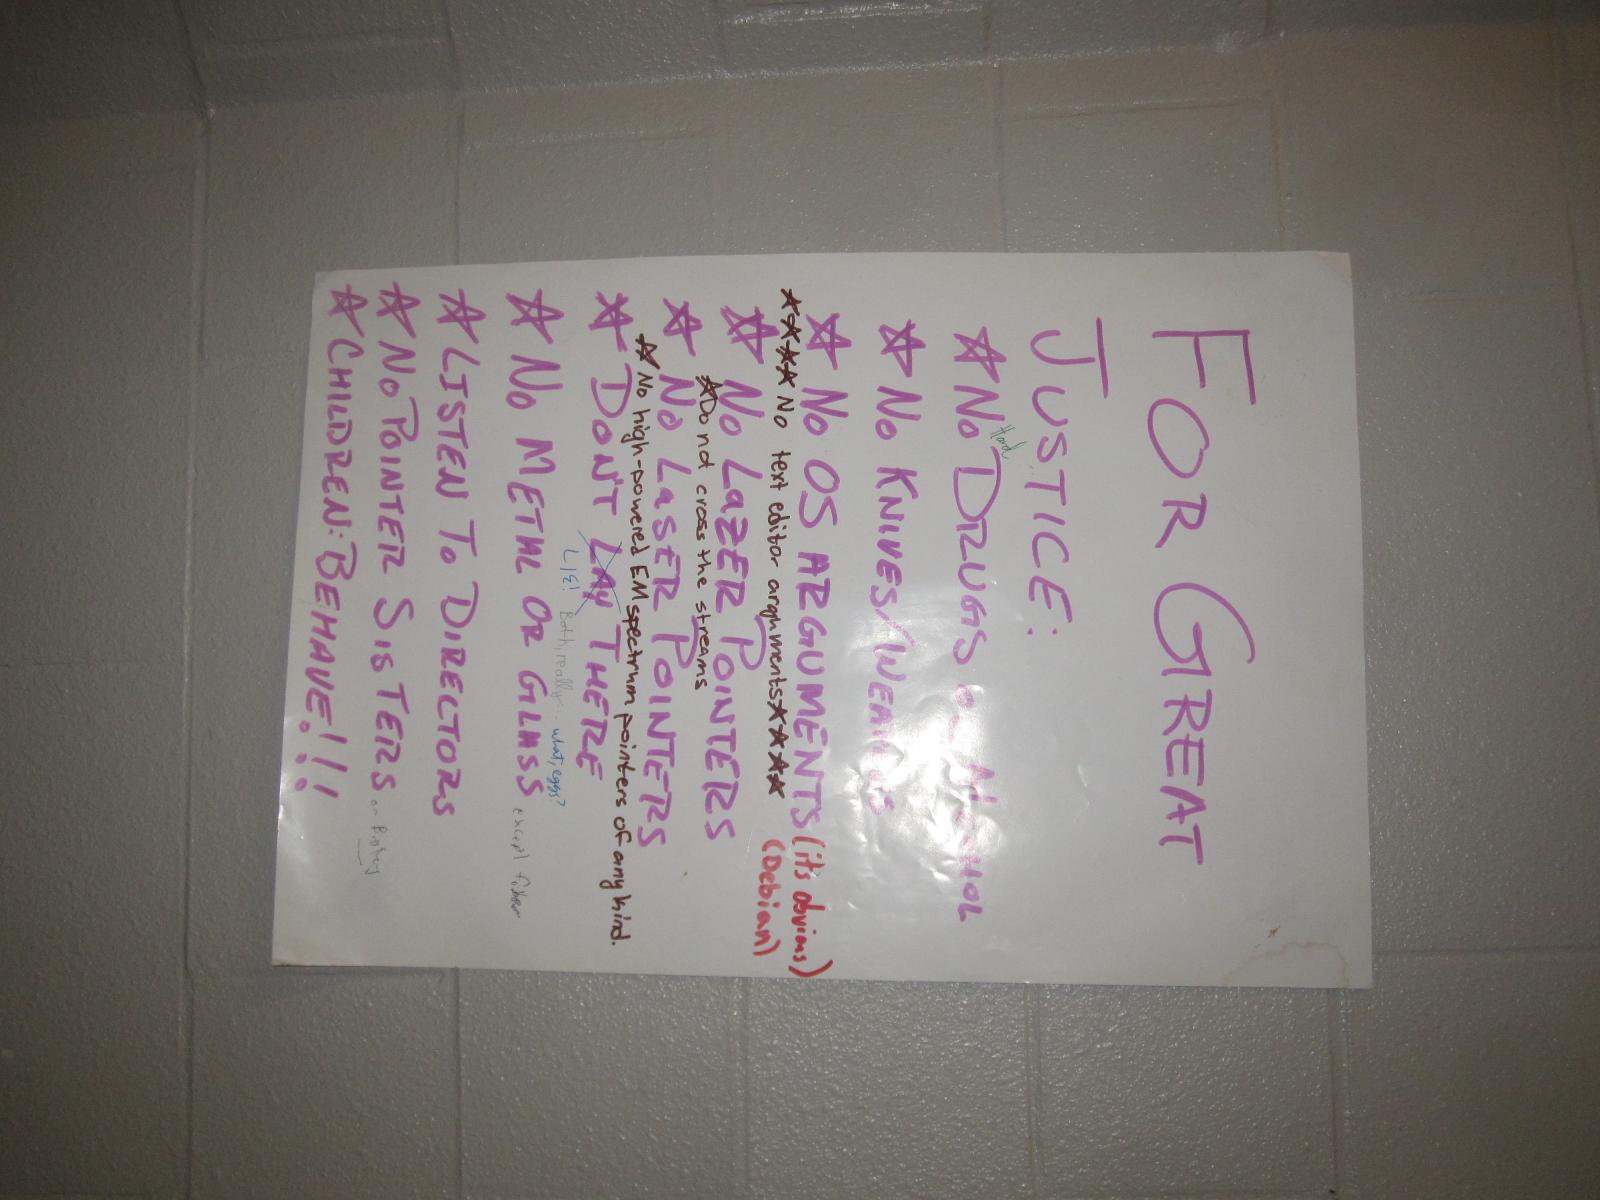 FOR GREAT
JUSTICE:
Hard
☆ NO DRUGS
☆ NO KNIVES/WEAPONS
☆ NO OS ARGUMENTS (it's obvious)
★★★★ No text editor arguments★★★★ (Debian)
☆ NO LAZER POINTERS
☆Do not cross the streams
☆ NO LASER POINTERS
☆ No high-powered EM spectrum pointers of any kind.
☆ DON'T LAY THERE
LIE! Both, really.. what, eggs?
☆ NO METAL OR GLASS except fiber
☆ LISTEN TO DIRECTORS
☆ NO POINTER SISTERS
☆ CHILDREN: BEHAVE!!!